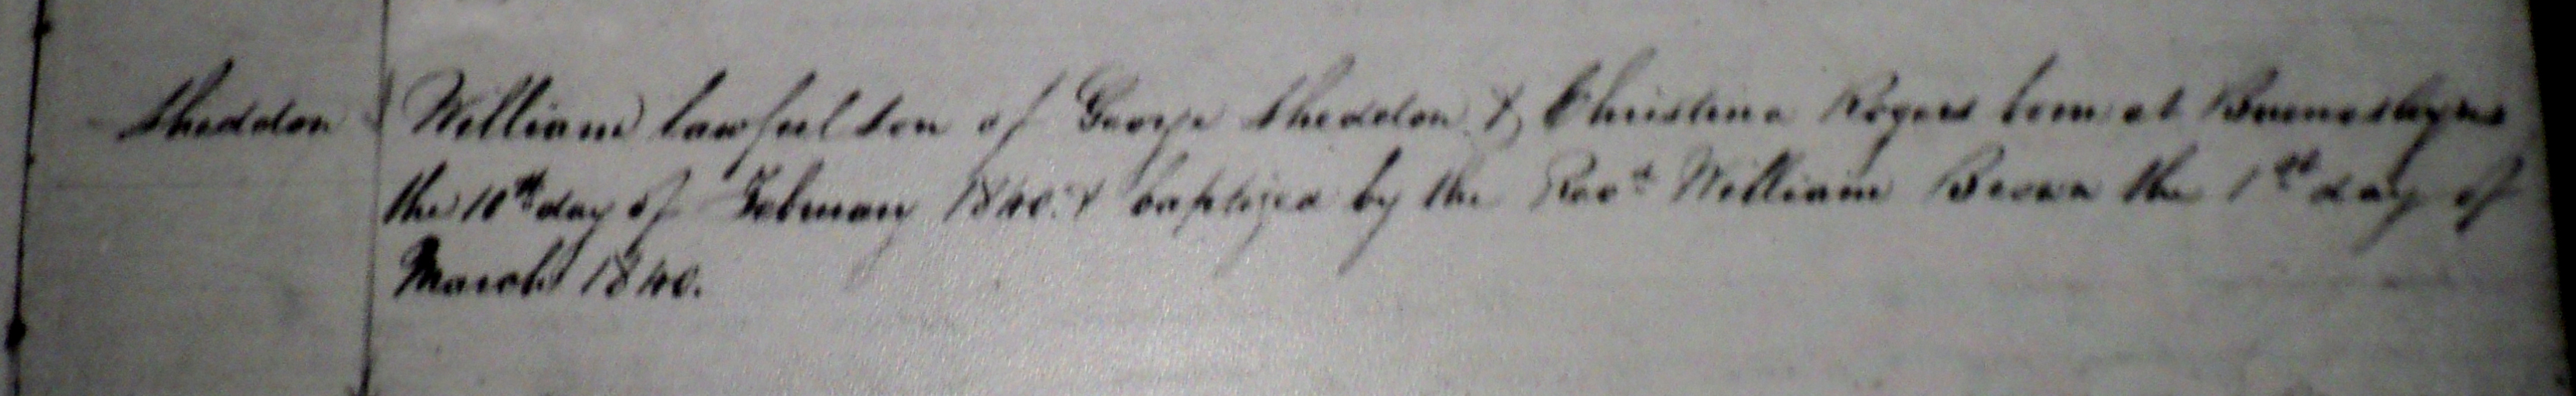 Sheddon William lawful son of George Sheddon & Christina Rogers born at Buenos Ayres
the 10th day of February 1840. & baptized by the Revd William Brown the 1st day of
March 1840.